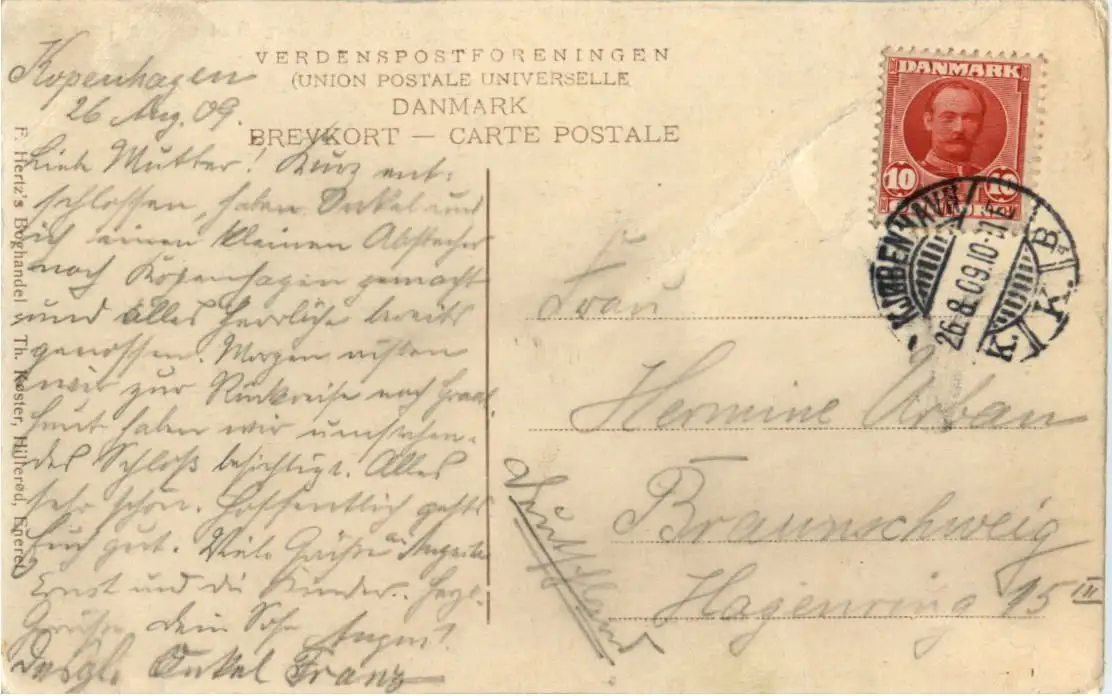 VERDENSPOSTFORENINGEN
(UNION POSTALE UNIVERSELLE
DANMARK
BREVKORT — CARTE POSTALE
Kopenhagen
26 Aug. 09.
Liebe Mutter! Kurz ent-
schlossen, haben Onkel und
ich einen kleinen Abstecher
nach Kopenhagen gemacht
und alles Herrliche bereits
genossen. Morgen
wir zur Rückreise nach Graal
heut haben wir umstehen-
des Schloß besichtigt. Alles
sehr schön. Hoffentlich gehts
Euch gut. Viele Grüße an Auguste
Ernst und die Kinder. Herzl.
Grüße Dein Sohn August
Desgl. Onkel Franz
F. Hertz's Boghandel v. Th. Køster, Hillerød, Eneret
DANMARK
10 10
KJØBENHAVN
26.8.09.10-11E
K. K. B.
Frau
Hermine Urban
Braunschweig
Hagenring 15 III
Deutschland